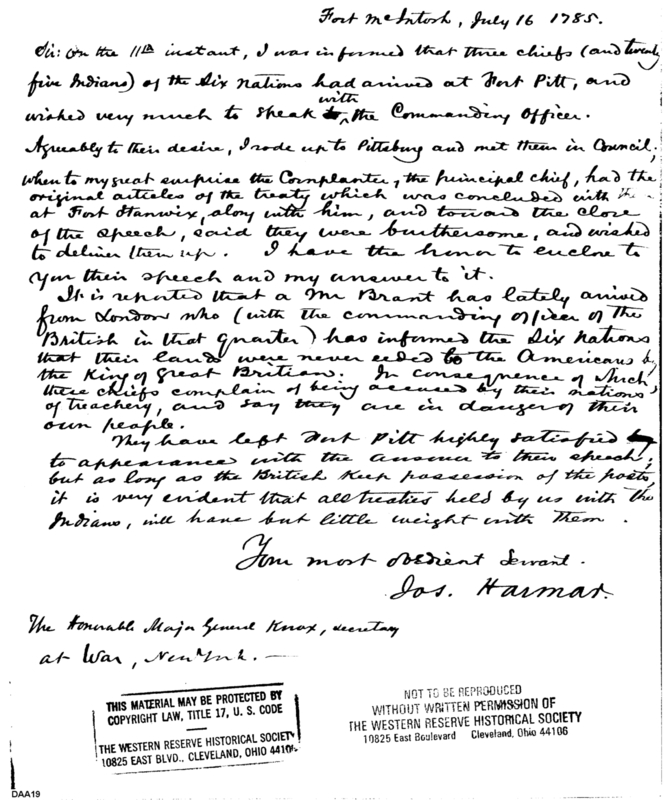 Fort McIntosh, July 16 1785.
Sir: On the 11th instant, I was informed that three chiefs (and twenty
five Indians) of the Six Nations had arrived at Fort Pitt, and
wished very much to speak with the Commanding Officer.
Agreeably to their desire, I rode up to Pittsburg and met them in Council;
when to my great surprise the Cornplanter, the principal chief, had the
original articles of the treaty which was concluded with
at Fort Stanwix, along with him, and toward the close
of the speech, said they were burthersome, and wished
to deliver them up. I have the honor to enclose to
you their speech and my answer to it.
It is reported that a Mr Brant has lately arrived
from London who (with the commanding officer of the
British in that quarter) has informed the Six Nations
that their lands were never ceded to the Americans by
the King of Great Britian. In consequence of which
these chiefs complain of being accused by their nations
of treachery, and say they are in danger of their
own people.
They have left Fort Pitt highly satisfied
to appearance with the answer to their speech;
but as long as the British keep possession of the posts,
it is very evident that all treaties held by us with the
Indians, will have but little weight with them.
Your most obedient Servant.
Jos. Harmar.
The Honorable Major General Knox, secretary
at War, New York. —
THIS MATERIAL MAY BE PROTECTED BY
COPYRIGHT LAW, TITLE 17, U. S. CODE
THE WESTERN RESERVE HISTORICAL SOCIETY
10825 EAST BLVD., CLEVELAND, OHIO 44106
NOT TO BE REPRODUCED
WITHOUT WRITTEN PERMISSION OF
THE WESTERN RESERVE HISTORICAL SOCIETY
10825 East Boulevard Cleveland, Ohio 44106
DAA19